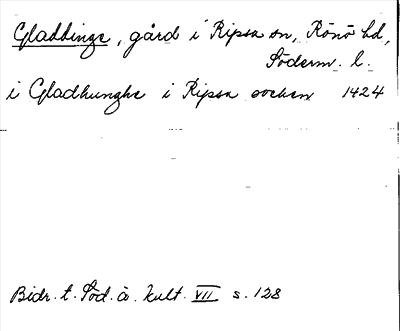 Gladdinge, gård i Ripsa sn, Rönö hd,
Söderm. l.
i Gladhunghe i Ripsa socken 1424
Bidr. t. Söd. ä. kult. VII s. 128